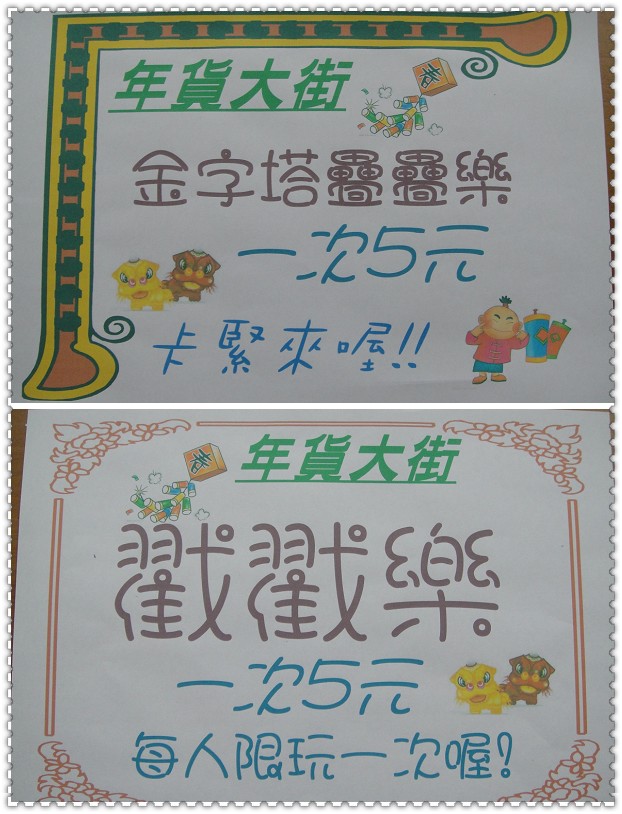 年貨大街
金字塔疊疊樂
一次5元
卡緊來喔!!
年貨大街
戳戳樂
一次5元
每人限玩一次喔!